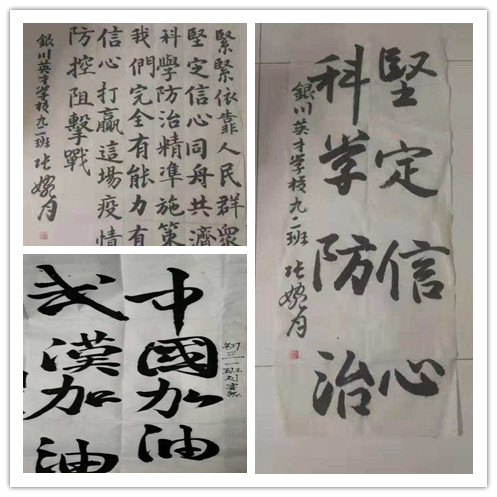 緊緊依靠人民群眾
堅定信心同舟共濟
科學防治精準施策
我們完全有能力有
信心打贏這場疫情
防控阻擊戰
銀川英才学校九二班张婉月
初三一班刘
中國加油
武漢加油
堅定信心
科学防治
銀川英才学校九二班张婉月